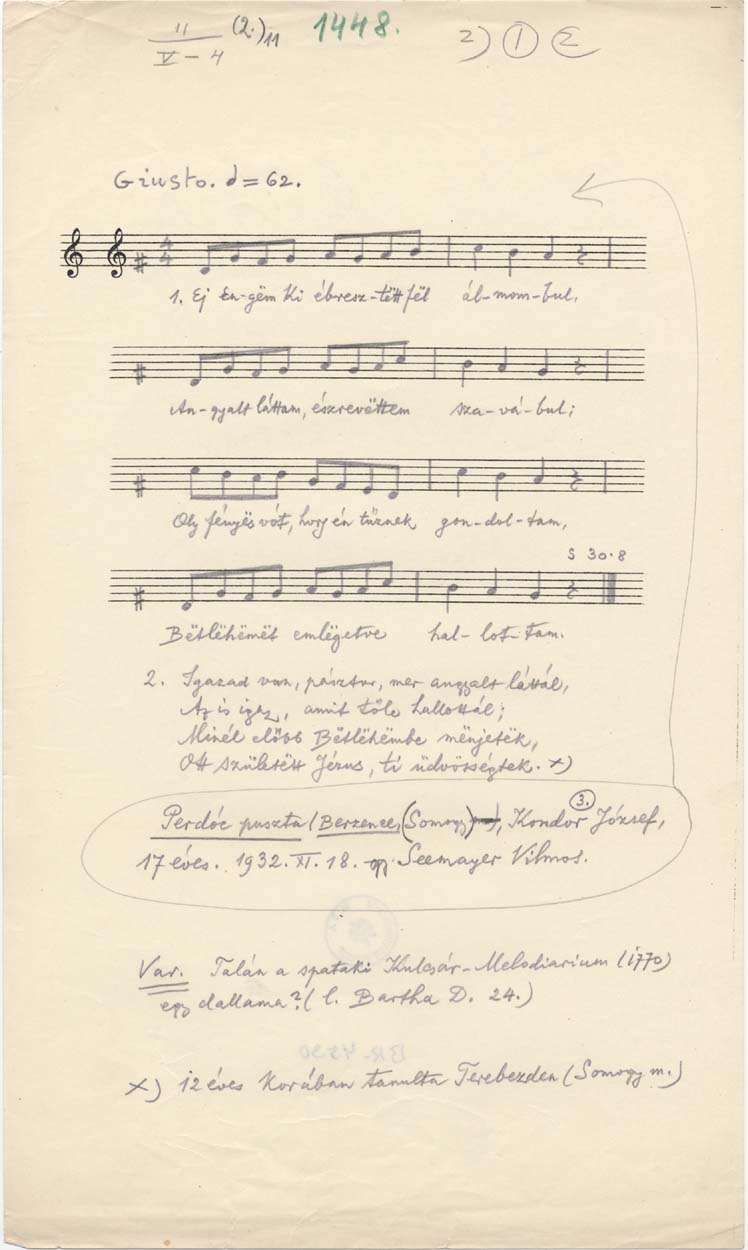 11 (2.) 11 1448. 2) 1 2
V – 4
Giusto. d = 62.
4
4
1. Ej En-gëm ki ébresz-tëtt fël ál-mom-bul,
An-gyalt láttam, észrevëttem sza-vá-bul;
Oly fényës vót, hogy én tűznek gon-dol-tam,
S 30.8
Bëtlëhëmët emlëgetve hal-lot-tam.
2. Igazad van, pásztor, mer angyalt láttál,
Az is igaz, amit tőle hallottál;
Minél előbb Bëtlëhëmbe mënjetëk,
Ott születëtt Jézus, ti üdvösségtek. x)
3.
Perdóc puszta (Berzence, (Somogy), Kondor József,
17 éves. 1932. XI. 18. gy Seemayer Vilmos.
Var. Talán a spataki Kulcsár-Melodiarium (1770)
egy dallama? (l. Bartha D. 24.)
BR-4830
x) 12 éves korában tanulta Terebezden (Somogy m.)